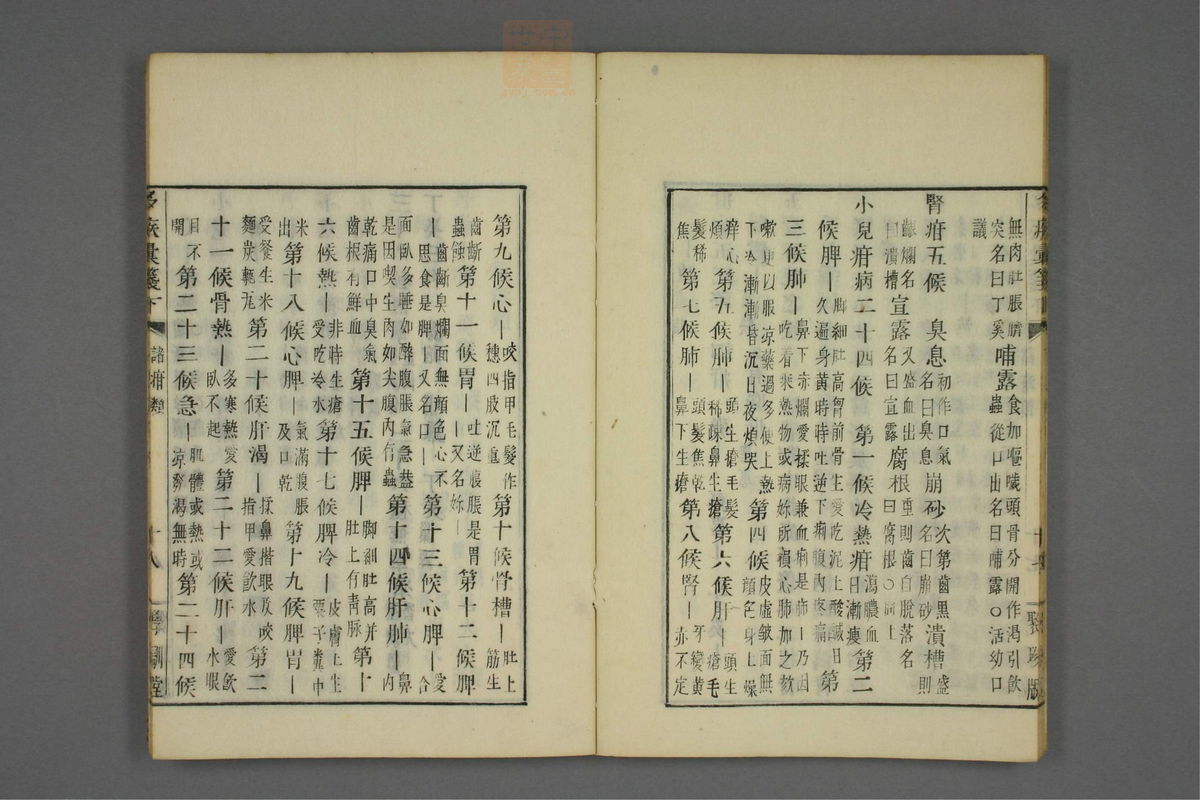 無肉肚脹臍突名曰丁奚 哺露 食加嘔噦頭骨分開作渴引飲蟲從口出名曰哺露○活幼口
議
腎疳五候 臭息 初作口氣名曰臭息 崩砂 次第齒黑名曰崩砂 潰槽 盛則
齦爛名曰潰槽 宣露 又盛血出名曰宣露 腐根 重則齒自脫落名曰腐根○同上
小兒疳病二十四候 第一候冷熱疳 瀉膿血日漸瘦 第二
候脾｜ 脚細肚高胷前骨生愛吃泥土酸鹹日久遍身黃時時吐逆下痢腹內疼痛 第
三候肺｜ 鼻下赤爛愛揉眼兼血痢是肺｜乃因吃着熱物或病妳所損心肺加之欬
嗽更以服涼藥過多便上熱下冷漸漸昏沉日夜煩哭 第四候 皮虛皺面無顏色身上燥
痒心煩 第五候肺｜ 頭生瘡毛髮稀疎鼻生瘡 第六候肝｜ 頭生瘡毛
髮稀焦 第七候肺｜ 頭髮焦乾鼻下生瘡 第八候腎｜ 牙變黃赤不定
第九候心｜ 咬指甲毛髮作穗四肢沉重 第十候骨槽｜ 肚上筋生
齒齗蟲蝕 第十一候胃｜ 吐逆腹脹是胃｜又名妳｜ 第十二候脾
｜ 齒齗臭爛面無顏色心不思食是脾｜又名口｜ 第十三候心脾｜ 愛合
面臥多睡如醉腹脹氣急葢是因喫生肉如尖腹內有蟲 第十四候肝肺｜ 鼻內
乾痛口中臭氣齒根有鮮血 第十五候脾｜ 脚細肚高并肚上有靑脈 第十
六候熱｜ 非時生瘡受吃冷水 第十七候脾冷｜ 皮膚上生粟子糞中
米出 第十八候心脾｜ 氣滿腹脹及口乾 第十九候脾胃｜
受餐生米麵炭甎瓦 第二十候肝渴｜ 揉鼻揩眼及咬指甲愛飲水 第二
十一候骨熱｜ 多寒熱愛臥不起 第二十二候肝｜ 愛飲水眼
目不開 第二十三候急｜ 肌體或熱或涼發渴無時 第二十四候
諸疳類
十八
學訓堂